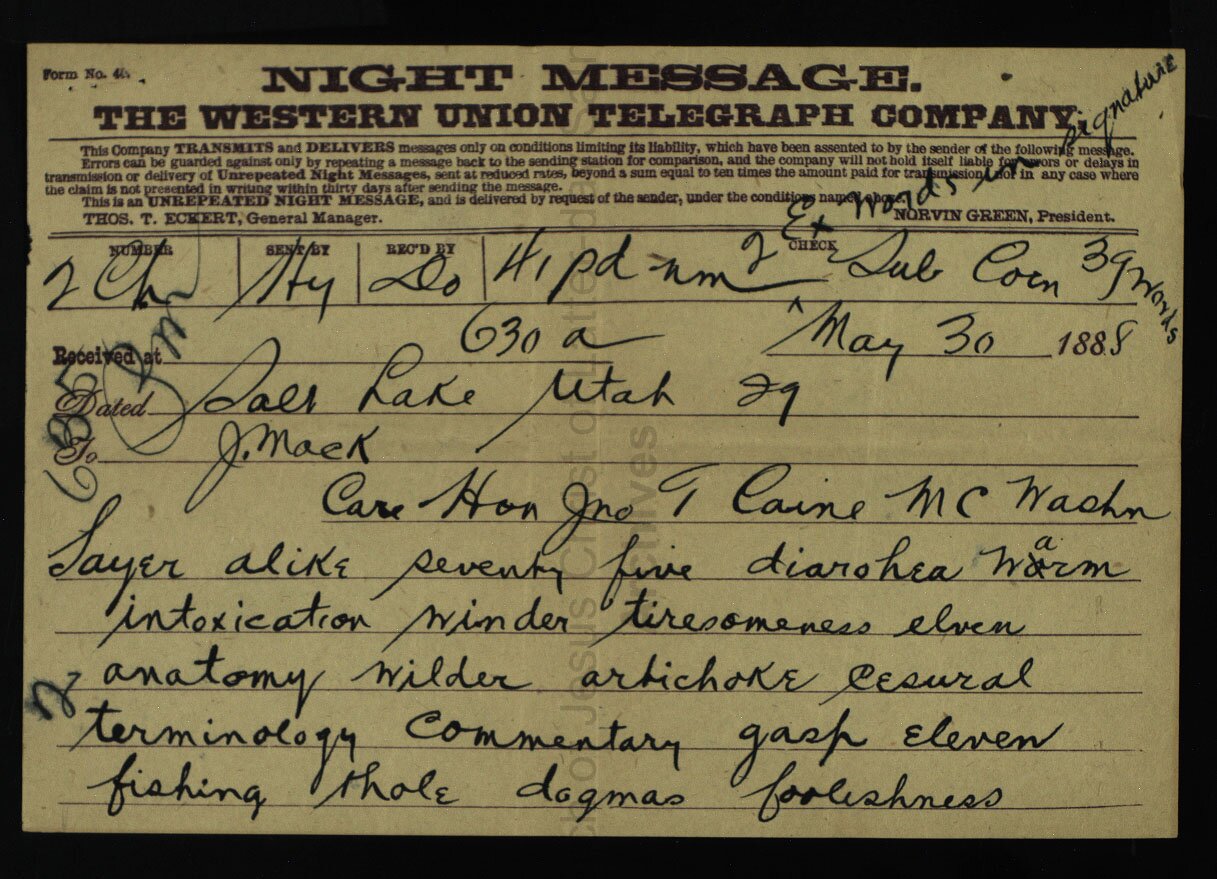 Form No. 46.
NIGHT MESSAGE.
THE WESTERN UNION TELEGRAPH COMPANY.
This Company TRANSMITS and DELIVERS messages only on conditions limiting its liability, which have been assented to by the sender of the following message.
Errors can be guarded against only by repeating a message back to the sending station for comparison, and the company will not hold itself liable for errors or delays in
transmission or delivery of Unrepeated Night Messages, sent at reduced rates, beyond a sum equal to ten times the amount paid for transmission; nor in any case where
the claim is not presented in writing within thirty days after sending the message.
This is an UNREPEATED NIGHT MESSAGE, and is delivered by request of the sender, under the conditions named above.
THOS. T. ECKERT, General Manager.
NORVIN GREEN, President.
2 Ex words in signature
NUMBER SENT BY REC'D BY CHECK
2 Ch Hy Do 41 pd nm Sub Coen 39 words
Received at 630 a May 30 1888
Dated Salt Lake Utah 29
To J. Mack
Care Hon Jno T Caine MC Washn
Sayer alike seventy five diarohea warm
intoxication winder tiresomeness elven
anatomy wilder artichoke cesural
terminology commentary gasp eleven
fishing thole dogmas foolishness